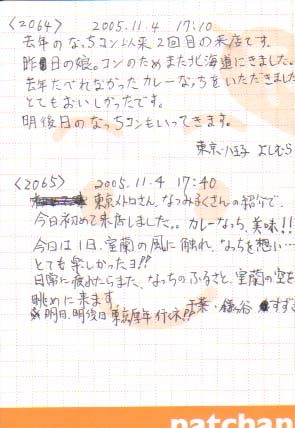 〈2064〉 2005.11.4 17:10
去年のなっちコン以来2回目の来店です。
昨日の娘。コンのためまた北海道にきました。
去年たべれなかったカレーなっちをいただきました
とてもおいしかったです。
明後日のなっちコンもいってきます。
東京・八王子 よしむら
〈2065〉 2005.11.4 17:40
東京メトロさん、なつみるくさんの紹介で、
今日初めて来店しました。。カレーなっち、美味!!
今日は1日、室蘭の風に触れ、なっちを想い…
とても楽しかったヨ!!
日常に疲れたらまた、なっちのふるさと、室蘭の空を
眺めに来ます
明日、明後日 厚年 行くネ!! 千葉・鎌ヶ谷 すず
patchan